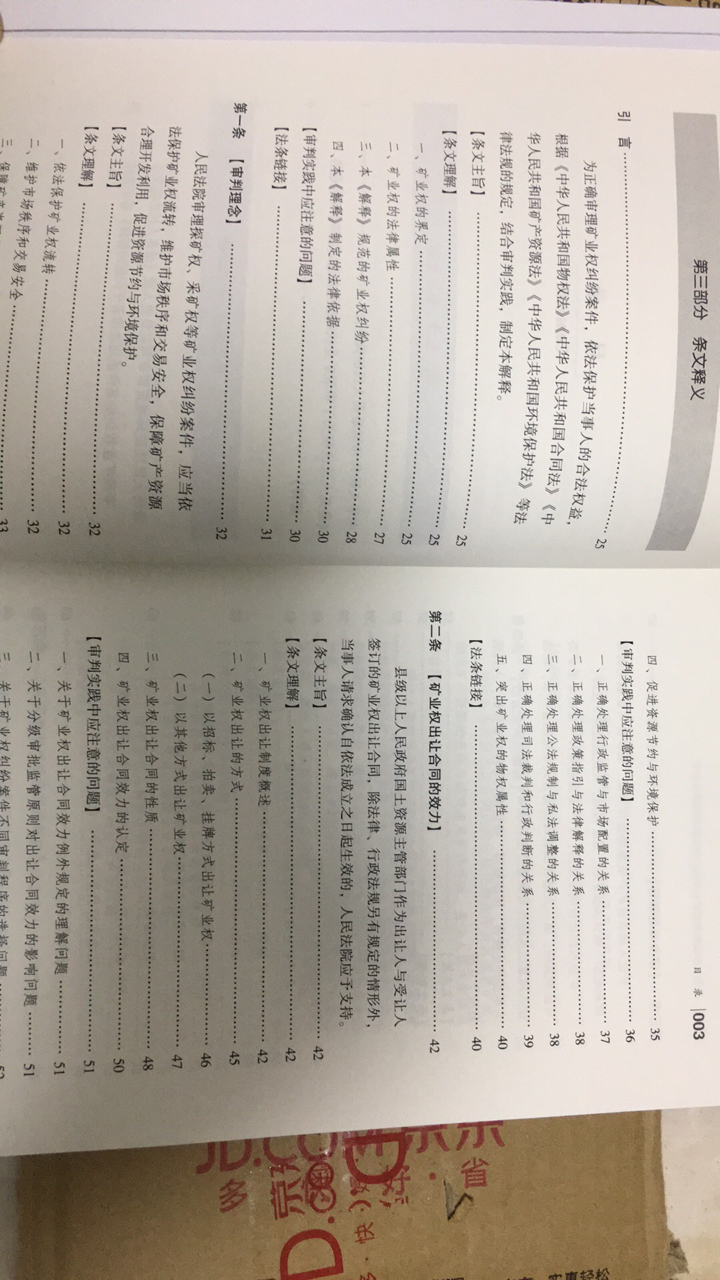 第三部分 条文释义
引 言 …… 25
为正确审理矿业权纠纷案件，依法保护当事人的合法权益，
根据《中华人民共和国物权法》《中华人民共和国合同法》《中
华人民共和国矿产资源法》《中华人民共和国环境保护法》等法
律法规的规定，结合审判实践，制定本解释。
【条文主旨】 …… 25
【条文理解】 …… 25
一、矿业权的界定 …… 25
二、矿业权的法律属性 …… 27
三、本《解释》规范的矿业权纠纷 …… 28
四、本《解释》制定的法律依据 …… 30
【审判实践中应注意的问题】 …… 30
【法条链接】 …… 31
第一条 【审判理念】 …… 32
人民法院审理探矿权、采矿权等矿业权纠纷案件，应当依
法保护矿业权流转，维护市场秩序和交易安全，保障矿产资源
合理开发利用，促进资源节约与环境保护。
【条文主旨】 …… 32
【条文理解】 …… 32
一、依法保护矿业权流转 …… 32
二、维护市场秩序和交易安全 …… 32
三、保障矿产资源 …… 33
目 录 |003
四、促进资源节约与环境保护 …… 35
【审判实践中应注意的问题】 …… 36
一、正确处理行政监管与市场配置的关系 …… 37
二、正确处理政策指引与法律解释的关系 …… 38
三、正确处理公法规制与私法调整的关系 …… 38
四、正确处理司法裁判和行政判断的关系 …… 39
五、突出矿业权的物权属性 …… 40
【法条链接】 …… 40
第二条 【矿业权出让合同的效力】 …… 42
县级以上人民政府国土资源主管部门作为出让人与受让人
签订的矿业权出让合同，除法律、行政法规另有规定的情形外，
当事人请求确认自依法成立之日起生效的，人民法院应予支持。
【条文主旨】 …… 42
【条文理解】 …… 42
一、矿业权出让制度概述 …… 42
二、矿业权出让的方式 …… 45
（一）以招标、拍卖、挂牌方式出让矿业权 …… 46
（二）以其他方式出让矿业权 …… 47
三、矿业权出让合同的性质 …… 48
四、矿业权出让合同效力的认定 …… 50
【审判实践中应注意的问题】 …… 51
一、关于矿业权出让合同效力例外规定的理解问题 …… 51
二、关于分级审批监管原则对出让合同效力的影响问题 …… 51
三、关于矿业权纠纷案件不同审判程序的选择问题 …… 52
JD.COM 京东
多·快·好·省